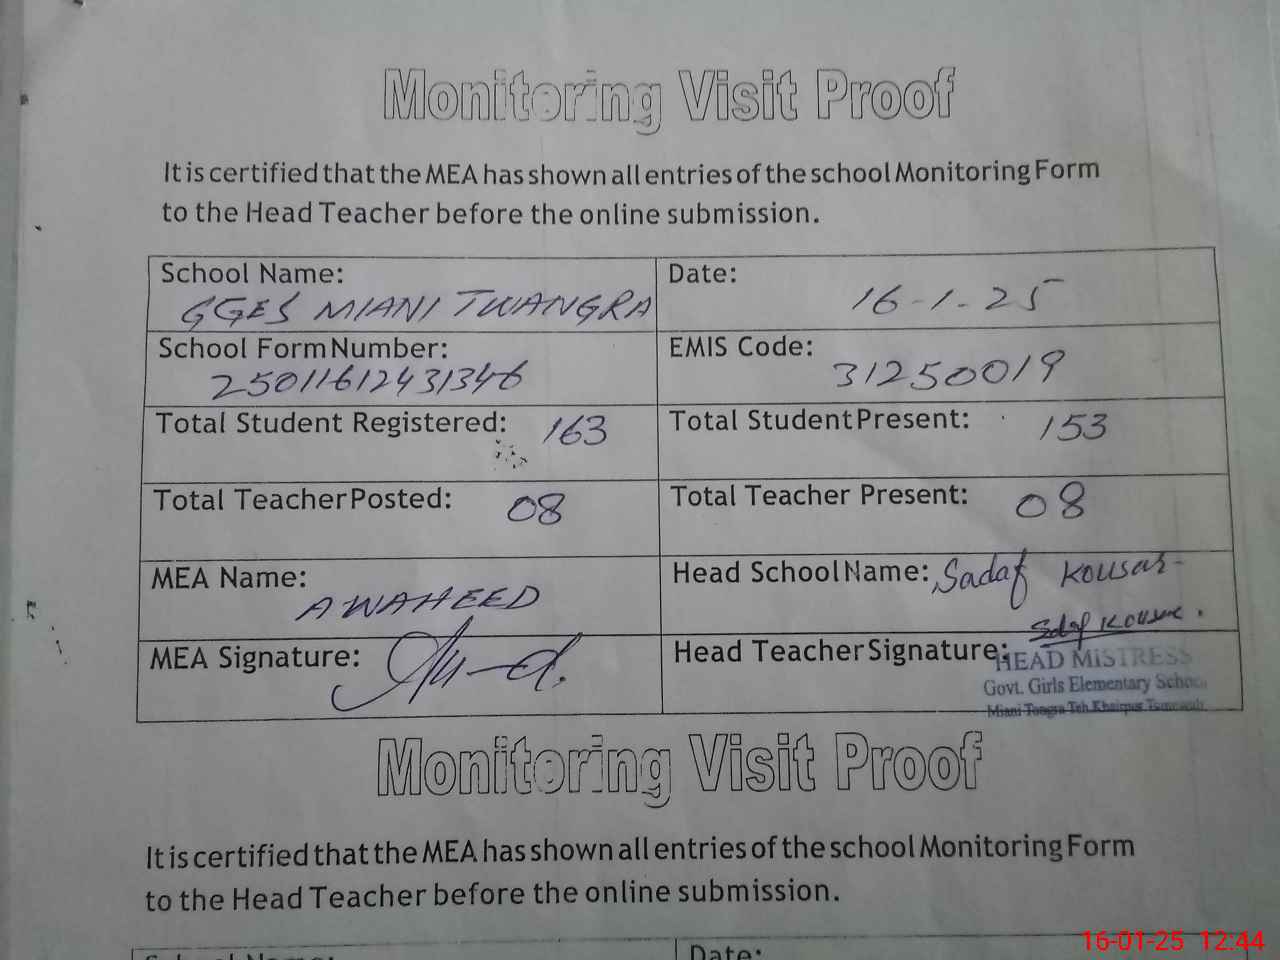 Monitoring Visit Proof
It is certified that the MEA has shown all entries of the school Monitoring Form
to the Head Teacher before the online submission.
School Name: GGES MIANI TWANGRA
Date: 16-1-25
School Form Number: 25011612431346
EMIS Code: 31250019
Total Student Registered: 163
Total Student Present: 153
Total Teacher Posted: 08
Total Teacher Present: 08
MEA Name: A WAHEED
Head School Name: Sadaf Kousar
MEA Signature:
Head Teacher Signature:
HEAD MISTRESS
Govt. Girls Elementary School
Miani Tongra Teh Khairpur
Monitoring Visit Proof
It is certified that the MEA has shown all entries of the school Monitoring Form
to the Head Teacher before the online submission.
School Name:
Date:
16-01-25 12:44